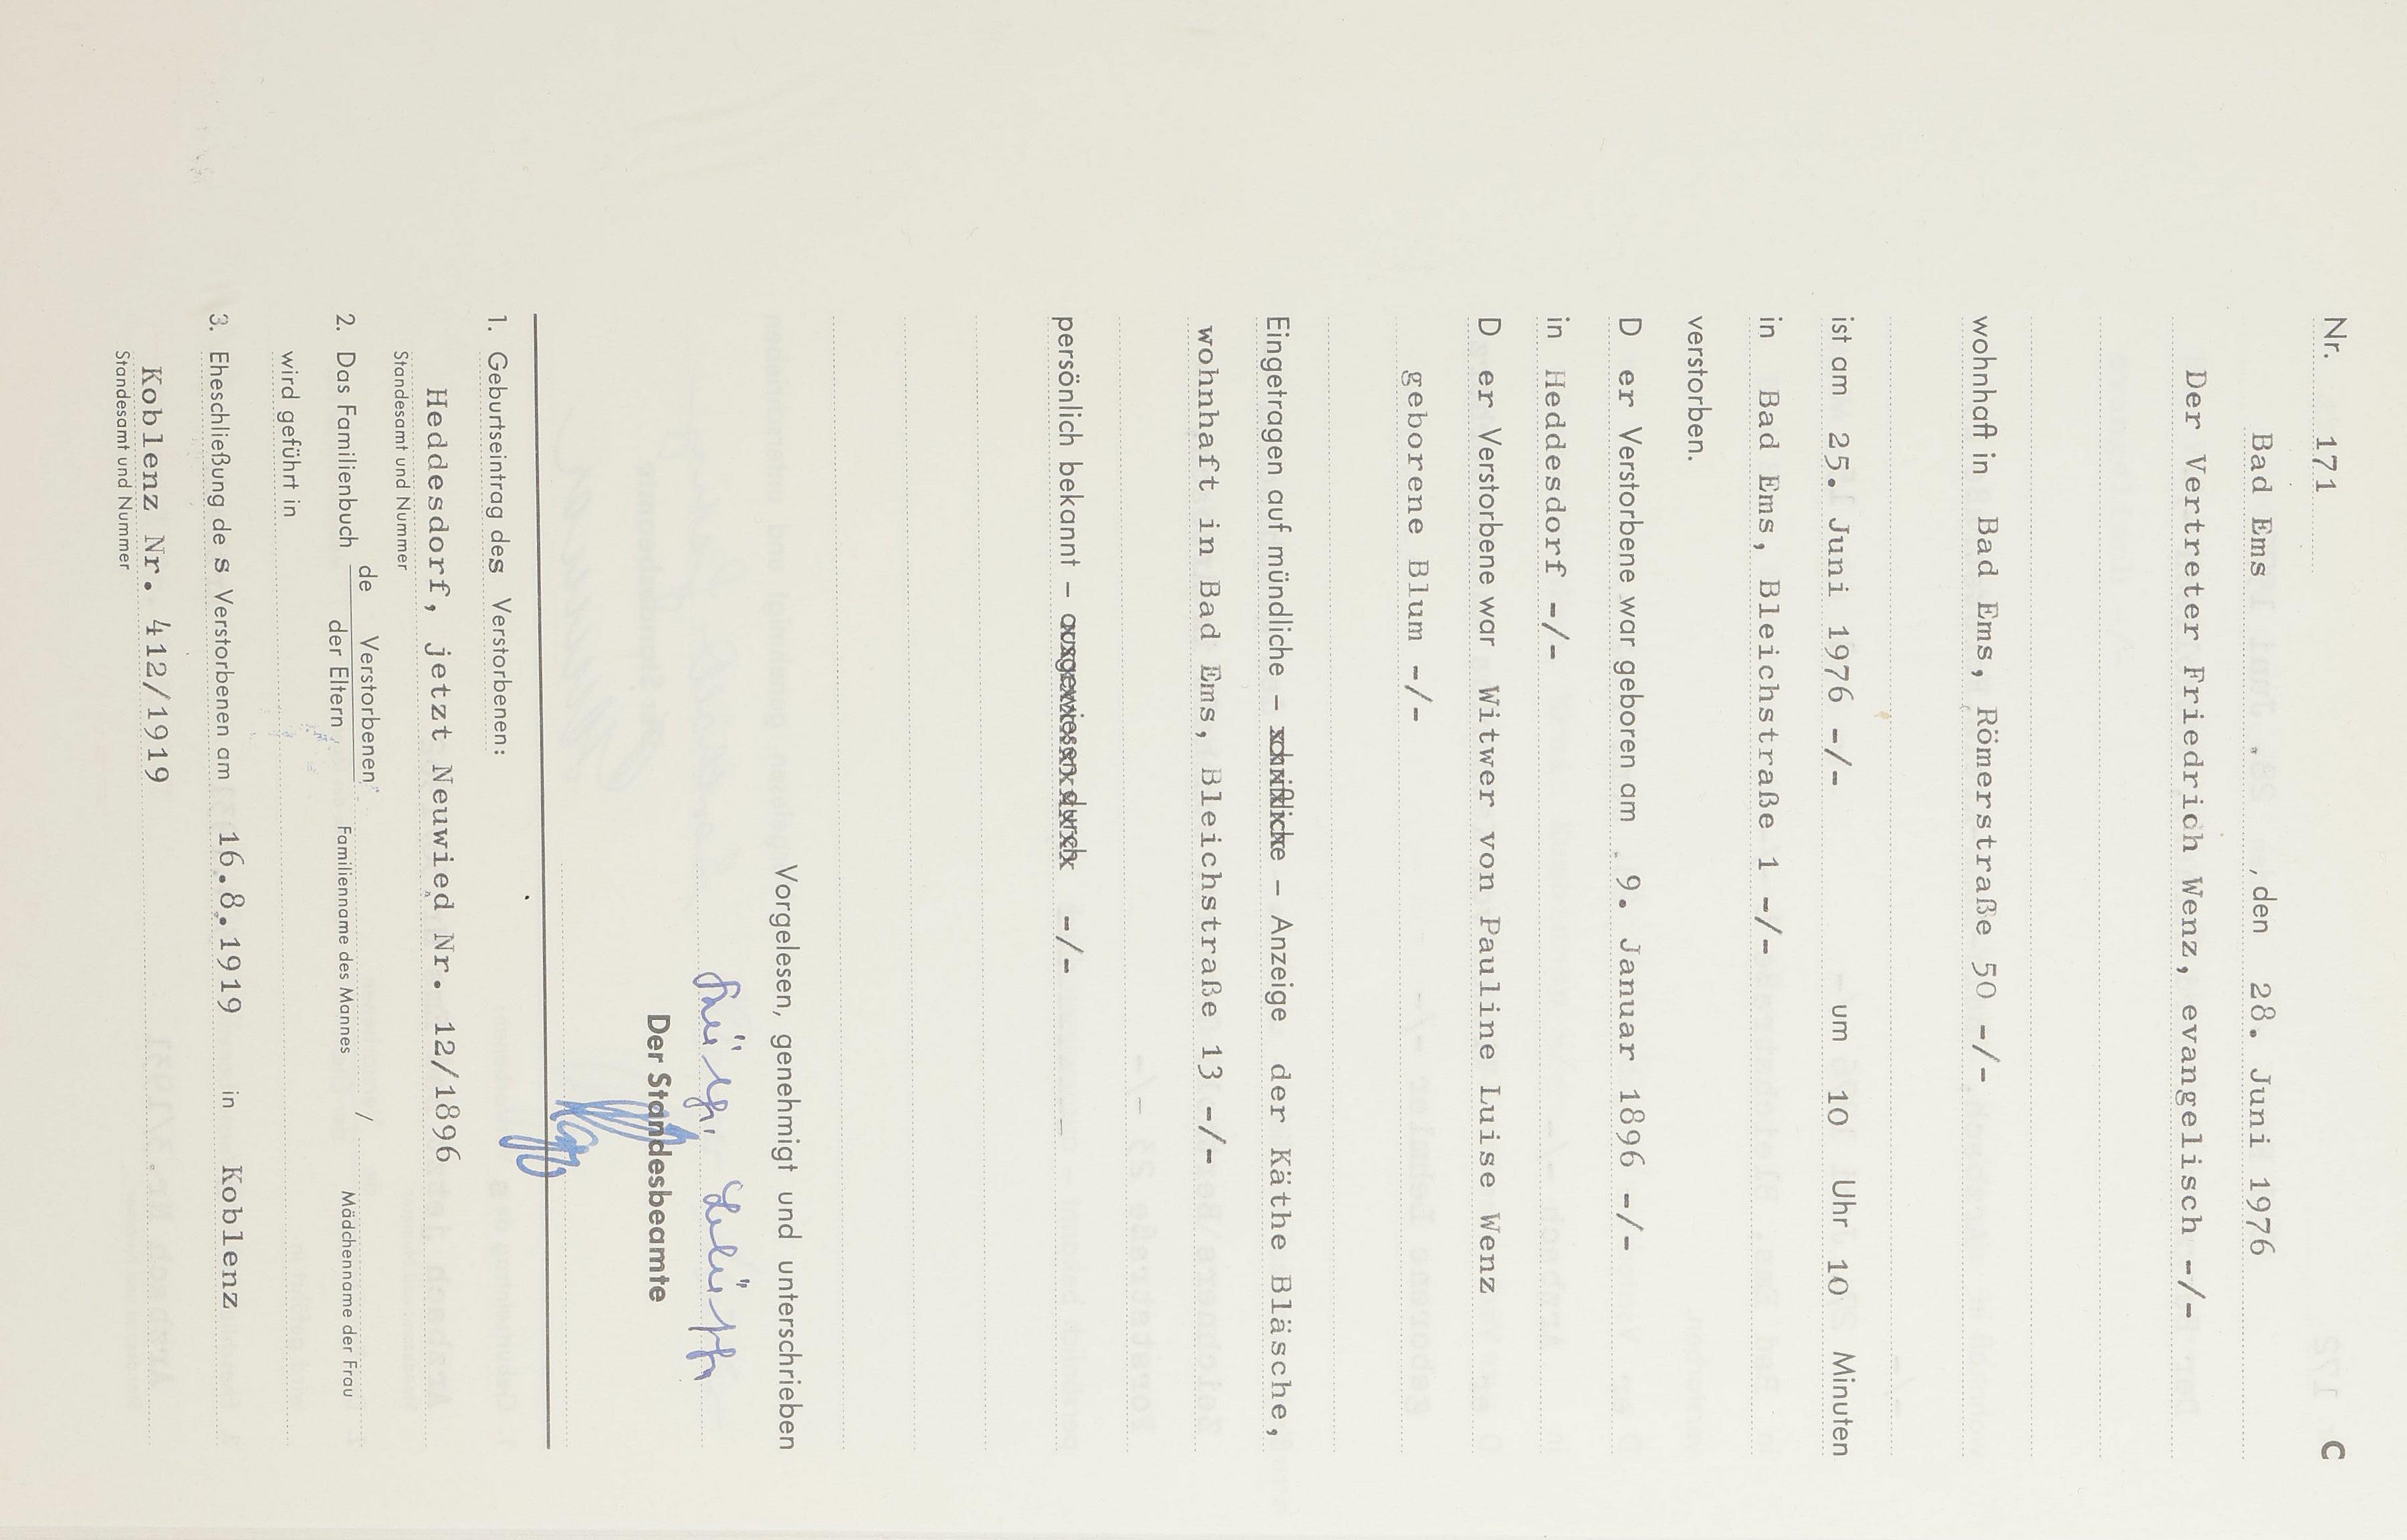 Nr. 171 C
Bad Ems , den 28. Juni 1976
Der Vertreter Friedrich Wenz, evangelisch -/-
wohnhaft in Bad Ems, Römerstraße 50 -/-
ist am 25. Juni 1976 -/- um 10 Uhr 10 Minuten
in Bad Ems, Bleichstraße 1 -/-
verstorben.
D er Verstorbene war geboren am 9. Januar 1896 -/-
in Heddesdorf -/-
D er Verstorbene war Witwer von Pauline Luise Wenz
geborene Blum -/-
Eingetragen auf mündliche – schriftliche – Anzeige der Käthe Bläsche,
wohnhaft in Bad Ems, Bleichstraße 13 -/-
persönlich bekannt – ausgewiesen durch -/-
Vorgelesen, genehmigt und unterschrieben
Der Standesbeamte
1. Geburtseintrag des Verstorbenen:
Heddesdorf, jetzt Neuwied Nr. 12/1896
Standesamt und Nummer
de Verstorbenen /
2. Das Familienbuch der Eltern Familienname des Mannes Mädchenname der Frau
wird geführt in
3. Eheschließung de s Verstorbenen am 16.8.1919 in Koblenz
Koblenz Nr. 412/1919
Standesamt und Nummer